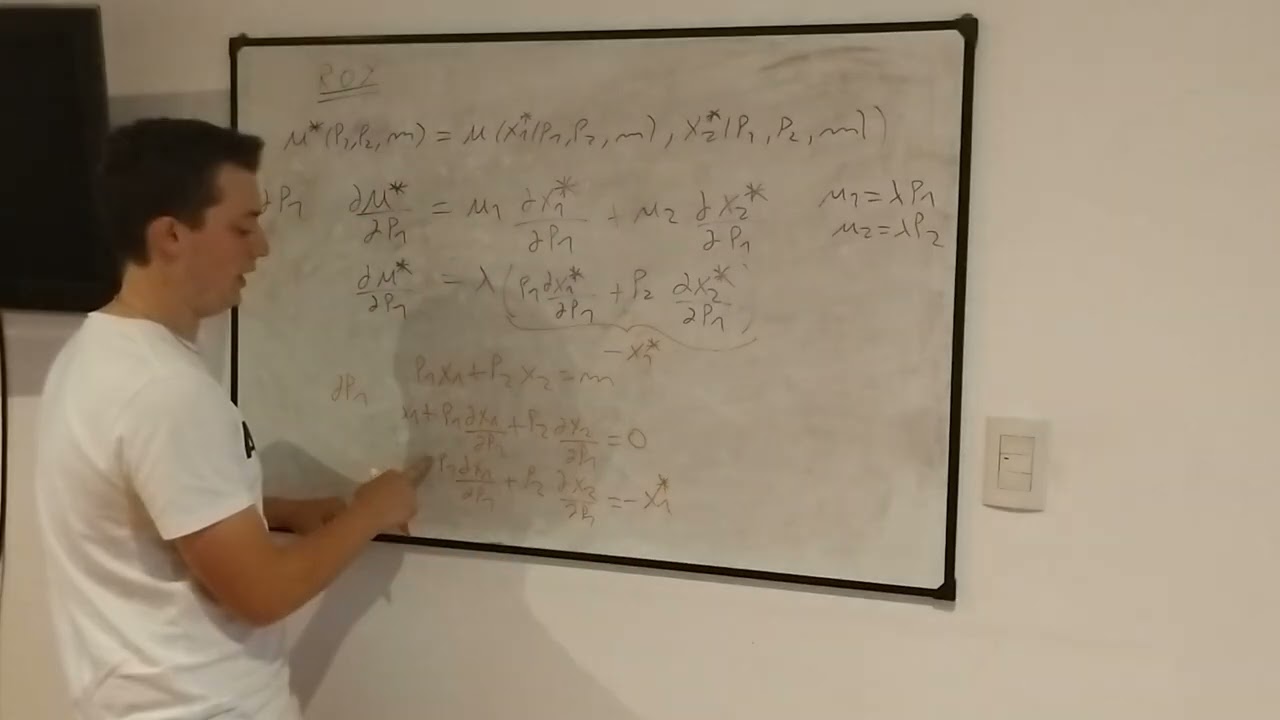 ROZ
μ*(P₁,P₂,m) = μ(x₁*(P₁,P₂,m), x₂*(P₁,P₂,m))
∂P₁ ∂μ*/∂P₁ = μ₁ ∂x₁*/∂P₁ + μ₂ ∂x₂*/∂P₁ μ₁=λP₁
μ₂=λP₂
∂μ*/∂P₁ = λ(P₁∂x₁*/∂P₁ + P₂ ∂x₂*/∂P₁)
-x₁*
P₁x₁+P₂x₂=m
∂P₁
x₁+P₁∂x₁/∂P₁+P₂∂x₂/∂P₁=0
P₁∂x₁/∂P₁+P₂ ∂x₂/∂P₁=-x₁*